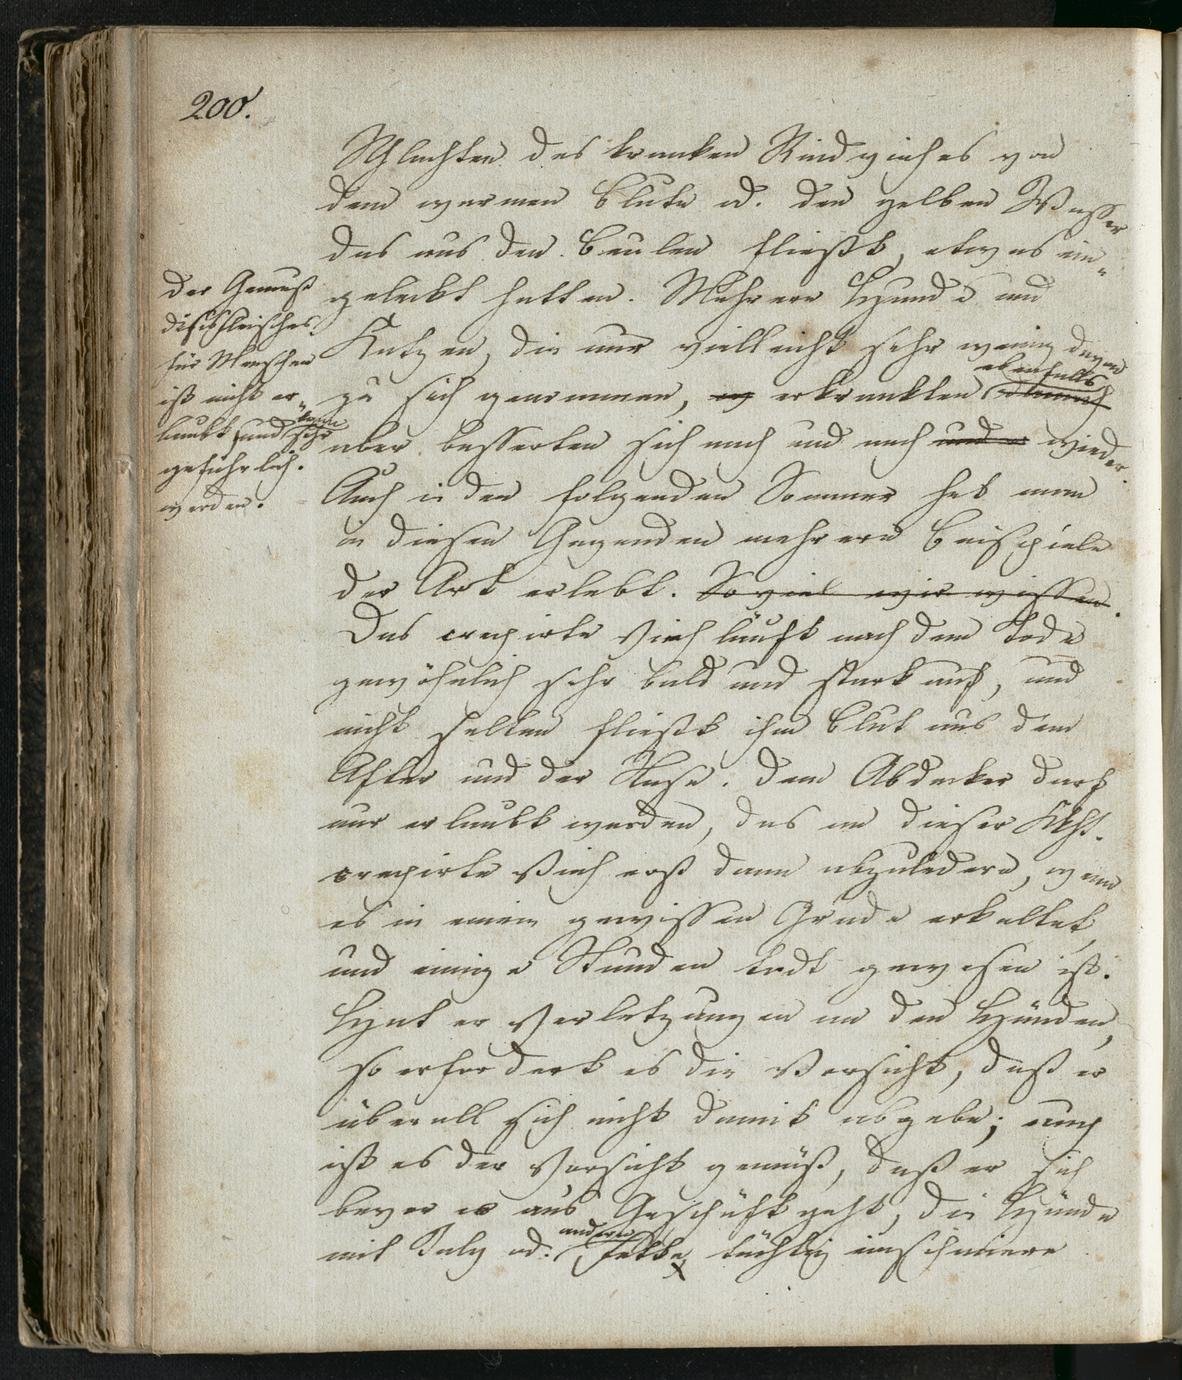 200.
Schlachten des kranken Rindviehes von
dem warmen Blute od. den gelben Wasser
das aus den Beulen fließt, etwas ein-
geleckt hatten. Mehrere Hunde und
Katzen, die nur vielleicht sehr wenig davon
zu sich genommen, erkrankten ebenfalls
aber besserten sich nach und nach und wieder.
Auch in den folgenden Sommer hat man
in diesen Gegenden mehrere Beispiele
der Art erlebt. So viel wir wissen.
Das crepirte Vieh läuft nach dem Tode
gewöhnlich sehr bald und stark auf, und
nicht selten fließt ihm Blut aus dem
After und der Nase. Dem Abdecker darf
nur erlaubt werden, das an dieser
crepirte Vieh erst dann abzuledern, wenn
es in einem gewissen Grade erkaltet
und einige Stunden todt gewesen ist.
Hat er Verletzungen an den Händen,
so erfordert es die Vorsicht, daß er
überall sich nicht damit abgebe; auch
ist es der Vorsicht gemäß, daß er sich
bevor er ans Geschäft geht, die Hände
mit Talg od. anderen Fette tüchtig einschmiere
Der Genuß
dis Fleisches
für Menschen
ist nicht er-
laubt und kann sehr
gefährlich.
werden.